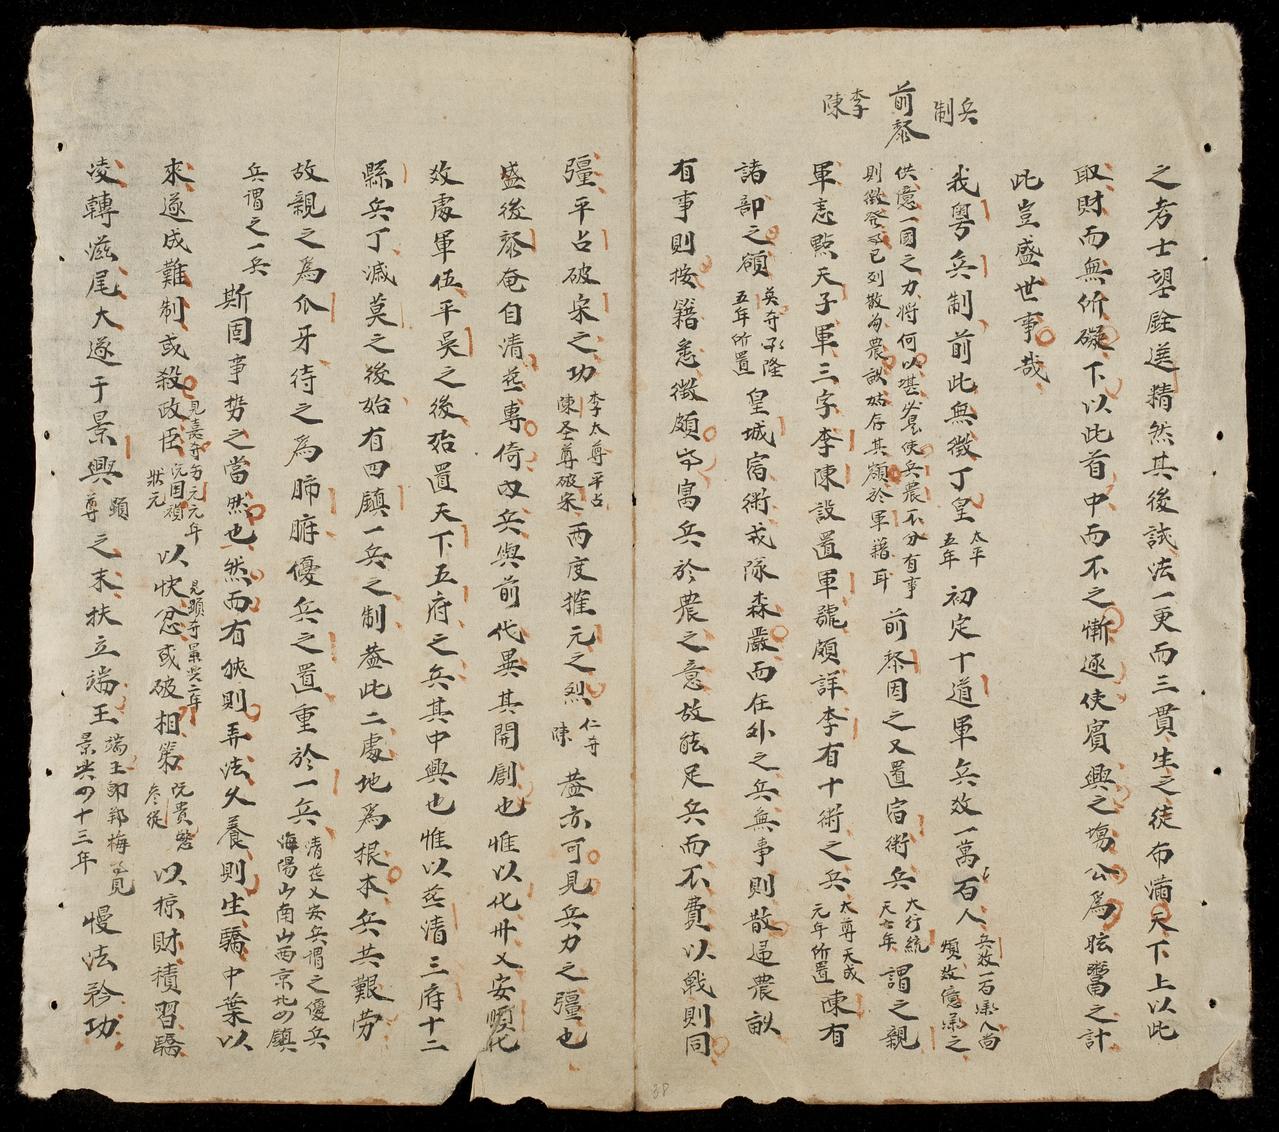 之考士望銓送精然其後試法一更而三貫生之徒布滿天下上以此
取財而無所礙下以此首中而不之慚遂使賓興之塲公爲眩鬻之計
此豈盛世事哉
兵制
我粵兵制前此無徵丁皇太平五年初定十道軍兵放一萬石人
供億一國之力將何以堪必是使兵農不分有事
則徵發已列散勿農故姑存其額於軍籍耳
前黎
前黎因之又置宿衛兵大行統天七年謂之親
李陳
軍悉點天子軍三字李陳設置軍號頗詳李有十衛之兵太尊天或元年所置陳有
諸部之額英奇隆五年所置皇城宿衛戎隊森嚴而在外之兵無事則散歸農畝
有事則按籍悉徵頗㝍寓兵於農之意故能足兵而不費以戰則同
彊平占破宋之功李太尊平占陳圣尊破宋兩度摧元之烈陳仁奇葢亦可見兵力之彊也
盛後黎奄自清花專倚内兵與前代異其開創也惟以化卅乂安順化
放處軍伍平吳之後始置天下五府之兵其中興也惟以花清三府十二
縣兵丁滅莫之後始有四鎮一兵之制葢此二處地爲根本兵共艱勞
故親之爲爪牙待之爲肺腑優兵之置重於一兵清花乂安兵謂之優兵海陽山南山西京北四鎮
兵謂之一兵斯固事勢之當然也然而有狹則弄法久養則生驕中葉以
來遂成難制或殺政臣以快忿或破相第以掠財積習驕
凌轉滋尾大遂于景興顯尊之末扶立端王端王即鄭景興四十三年慢法矜功